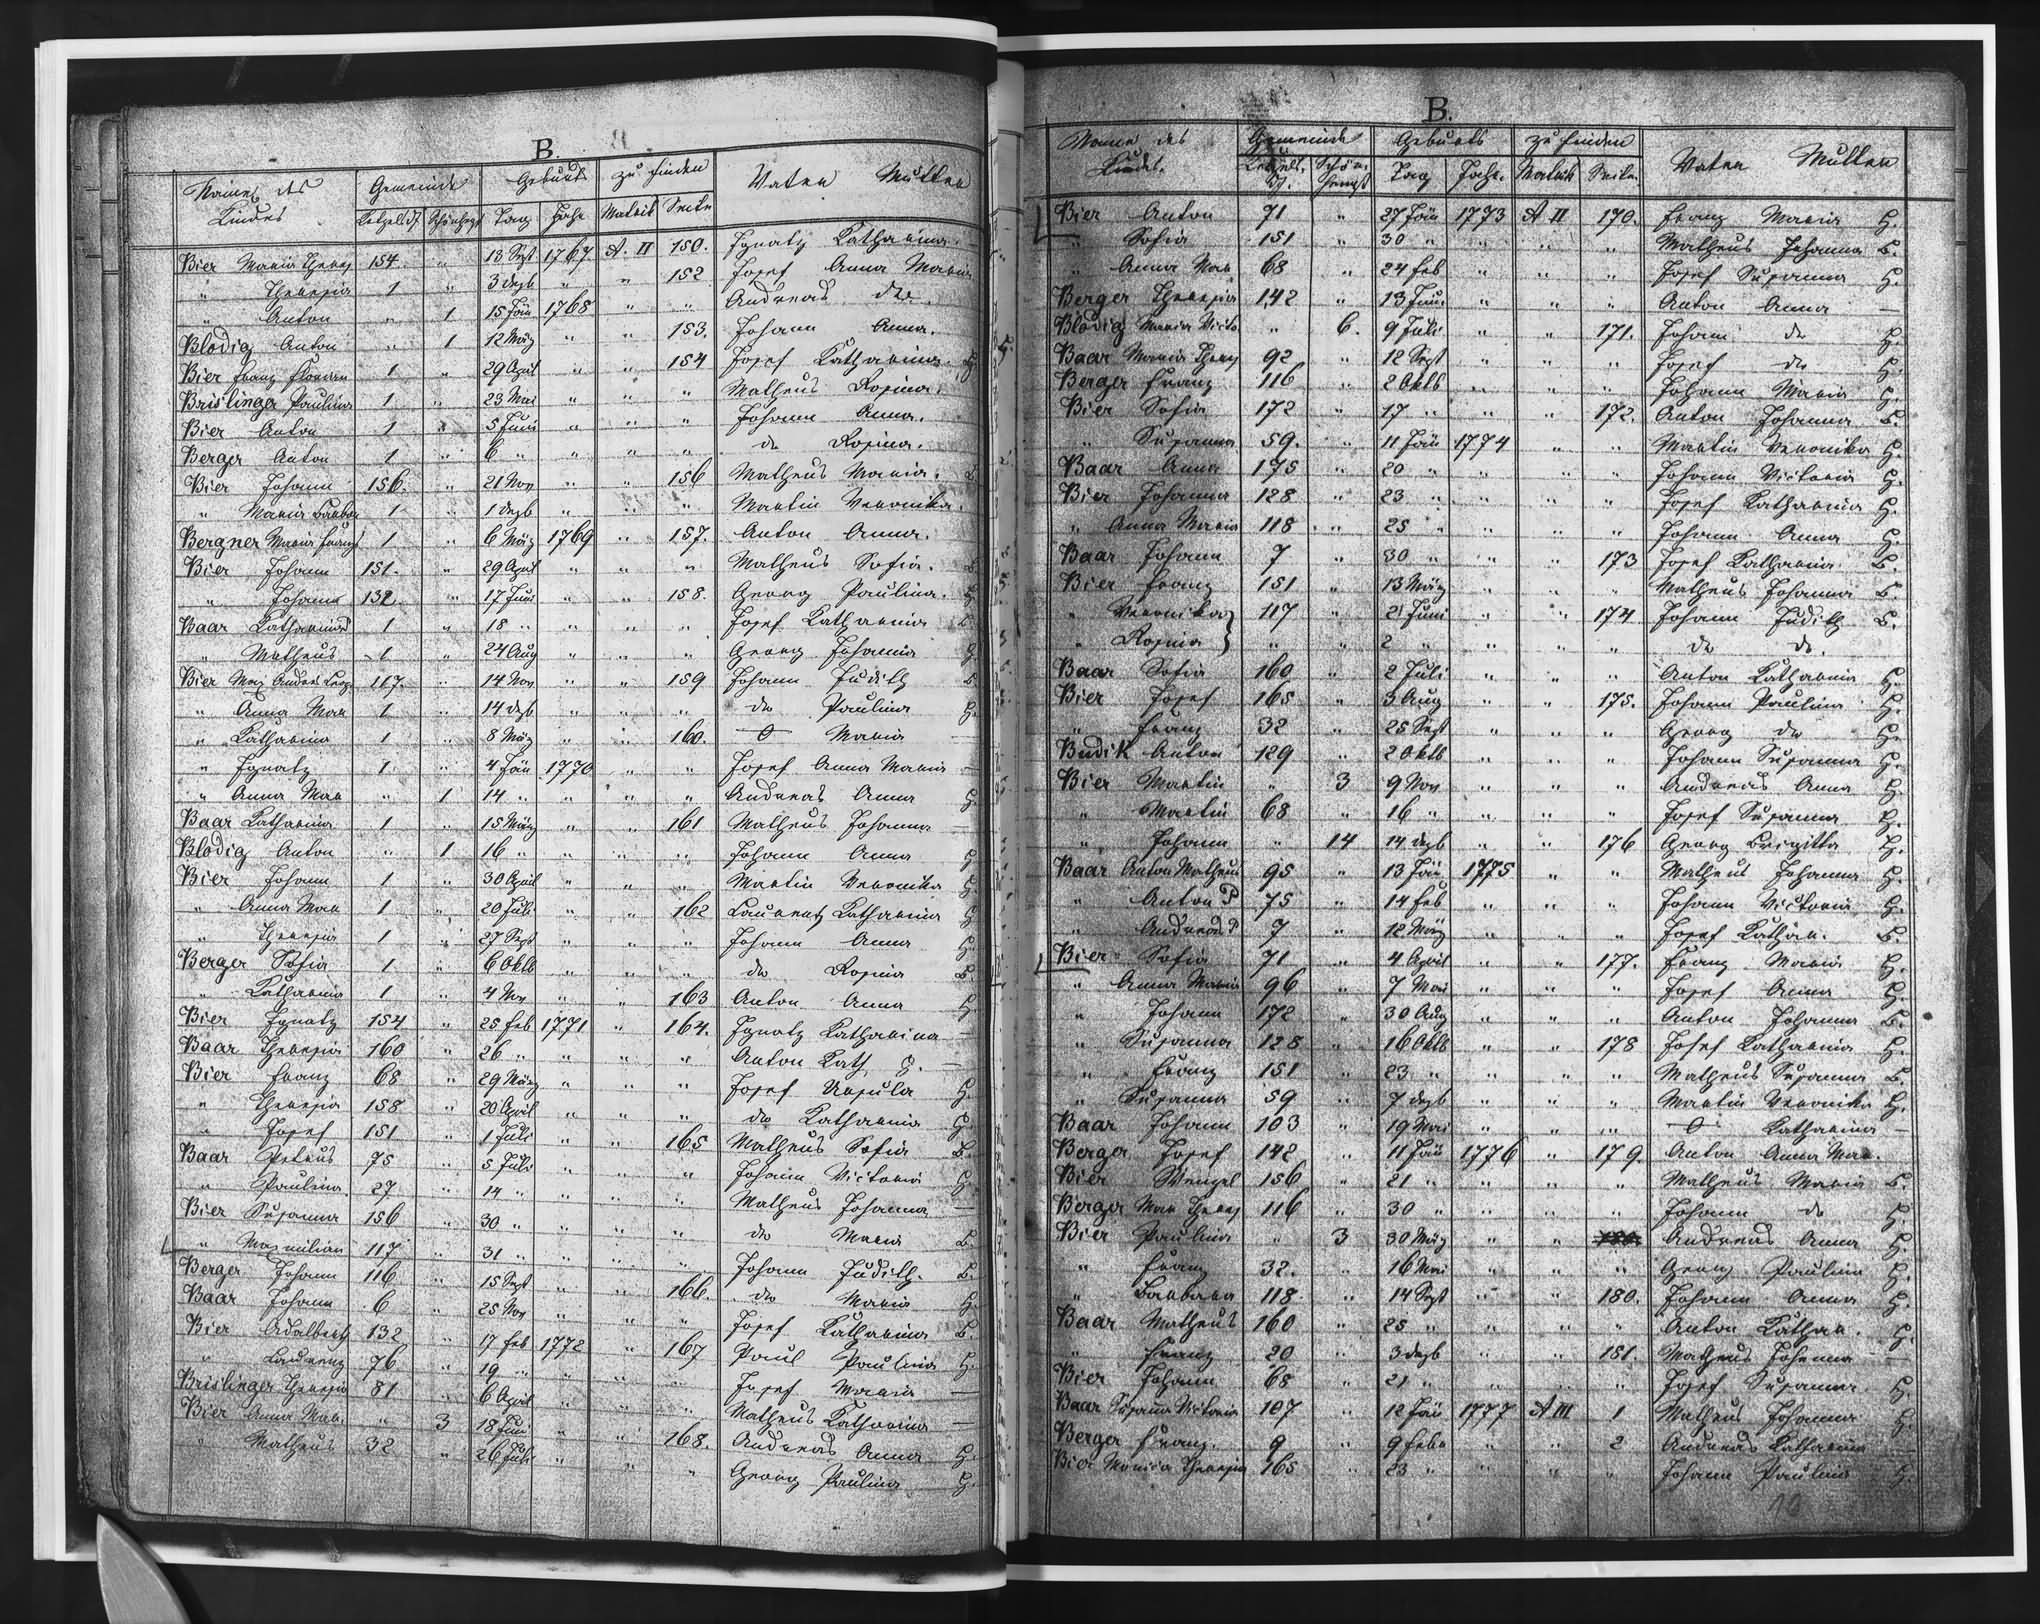 B.
Name des Kindes Gemeinde Geburts zu finden Vater Mutter
Ketzelsdf Schönhengst Tag Jahr Matrik Seite
Bier Maria Theres 154 " 13 Sept 1767 A. II 150. Ignatz Katharina
" Theresia 1 " 3 dezb " " 152 Josef Anna Maria
" Anton " 1 15 Jän 1768 " " Andreas dto
Blodig Anton " 1 12 März " " 153. Johann Anna.
Bier Franz Florian 1 " 29 April " " 154 Josef Katharina H
Brislinger Paulina 1 " 23 Mai " " " Matheus Rosina.
Bier Anton 1 " 5 Juni " " " Johann Anna.
Berger Anton 1 " 6 " " " " do Rosina.
Bier Johann 156. " 21 Nov " " 156 Matheus Maria. B
" Maria Barbara 1 " 1 dezb " " " Martin Veronika.
Bergner Maria Franz 1 " 6 März 1769 " 157. Anton Anna.
Bier Johann 151. " 29 April " " " Matheus Sofia. B
" Johann 132. " 17 Juni " " 158. Georg Paulina. H
Baar Katharina 1 " 18 " " " " Josef Katharina B
" Matheus 1 " 24 Aug " " " Georg Johanna H
Bier Max Andreas Leop. 117. " 14 Nov " " 159 Johann Judith B
" Anna Mar 1 " 14 dezb " " " do Paulina H.
" Katharina 1 " 8 März " " 160. 0 Maria —
" Ignatz 1 " 4 Jän 1770 " " Josef Anna Maria —
" Anna Mar " 1 14 " " " " Andreas Anna H
Baar Katharina 1 " 15 März " " 161 Matheus Johanna
Blodig Anton " 1 16 " " " " Johann Anna H
Bier Johann 1 " 30 April " " " Martin Veronika H
" Anna Mar 1 " 20 Juli " " 162 Laurenz Katharina H
" Theresia 1 " 27 Sept " " " Johann Anna H
Berger Sofia 1 " 6 Oktb " " " do Rosina B
" Katharina 1 " 4 Nov " " 163 Anton Anna H
Bier Ignatz 154 " 25 Feb 1771 " 164. Ignatz Katharina —
Baar Theresia 160 " 26 " " " " Anton Kath. H. —
Bier Franz 68 " 29 März " " " Josef Ursula H.
" Theresia 158 " 20 April " " " do Katharina H
" Josef 151 " 1 Juli " " 165 Matheus Sofia B.
Baar Petrus 75 " 5 Juli " " " Johann Victoria H
" Paulina 27 " 14 " " " " Matheus Johanna —
Bier Susanna 156 " 30 " " " " do Maria B.
" Maxmilian 117 " 31 " " " " Johann Judith. B.
Berger Johann 116 " 15 Sept " " 166. do Maria H.
Baar Johann 6 " 25 Nov " " " Josef Katharina B.
Bier Adalbert 132 " 17 Feb 1772 " 167 Paul Paulina H.
" Laurenz 76 " 19 " " " " Josef Maria —
Brislinger Theresia 81 " 6 April " " " Matheus Katharina —
Bier Anna Mar. " 3 18 Juni " " 168. Andreas Anna H.
" Matheus 32 " 26 Juli " " " Georg Paulina H.
B.
Name des Kindes. Gemeinde Geburts zu finden Vater Mutter
Ketzels. df. Schönhengst Tag Jahr. Matrik Seite
Bier Anton 71 " 27 Jän 1773 A II 170. Franz Maria H.
" Sofia 151 " 30 " " " " Matheus Johanna B.
" Anna Mar 68 " 24 Feb " " " Josef Susanna H.
Berger Theresia 142 " 13 Juni " " " Anton Anna —
Blodig Maria Victo. " 6. 9 Juli " " 171. Johann do H.
Baar Maria Theres 92 " 12 Sept " " " Josef do H.
Berger Franz 116 " 2 Oktb " " " Johann Maria H.
Bier Sofia 172 " 17 " " " 172. Anton Johanna B.
" Susanna 59. " 11 Jän 1774 " " Martin Veronika H.
Baar Anna 175 " 20 " " " " Johann Victoria H.
Bier Johanna 128 " 23 " " " " Josef Katharina H.
" Anna Maria 118 " 25 " " " " Johann Anna H.
Baar Johann 7 " 30 " " " 173 Josef Katharina B.
Bier Franz 151 " 13 März " " " Matheus Johanna B.
" Veronika 117 " 21 Juni " " 174 Johann Judith B.
" Rosina " " 2 " " " " do do.
Baar Sofia 160 " 2 Juli " " " Anton Katharina H.
Bier Josef 165 " 3 Aug " " 175. Johann Paulina H.
" Franz 32 " 25 Sept " " " Georg do H.
Budik Anton 129 " 2 Oktb " " " Johann Susanna H.
Bier Martin " 3 9 Nov " " " Andreas Anna H.
" Martin 68 " 16 " " " " Josef Susanna H.
" Johann " 14 14 dezb " " 176 Georg Brigitta H.
Baar Anton Matheus 95 " 13 Jän 1775 " " Matheus Johanna H.
" Anton P 75 " 14 Feb " " " Johann Victoria H.
" Andreas P 7 " 12 März " " " Josef Kathar. B.
Bier Sofia 71 " 4 April " " 177. Franz Maria H.
" Anna Maria 96 " 7 Mai " " " Josef Anna H.
" Johann 172 " 30 Aug " " " Anton Johanna B.
" Susanna 128 " 16 Oktb " " 178 Josef Katharina H.
" Franz 151 " 23 " " " " Matheus Susanna B.
" Susanna 59 " 7 dezb " " " Martin Veronika H.
Baar Johann 103 " 19 Mai " " " 0 Katharina —
Berger Josef 142 " 11 Jän 1776 " 179. Anton Anna Mar.
Bier Wenzel 156 " 21 " " " " Matheus Maria B.
Berger Mar Theres 116 " 30 " " " " Johann do H.
Bier Paulina " 3 30 März " " Andreas Anna H.
" Franz 32. " 16 Mai " " " Georg Paulina H.
" Barbara 118 " 14 Sept " " 180. Johann Anna H.
Baar Matheus 160 " 25 " " " " Anton Kathar. H.
" Franz 20 " 3 dezb " " 181. Matheus Johanna —
Bier Johann 68 " 21 " " " " Josef Susanna H.
Baar Susanna Victoria 107 " 12 Jän 1777 A III 1 Matheus Johanna H.
Berger Franz. 9 " 9 Febr " " 2 Andreas Katharina —
Bier Maria Theresia 165 " 23 " " " " Johann Paulina H.
10